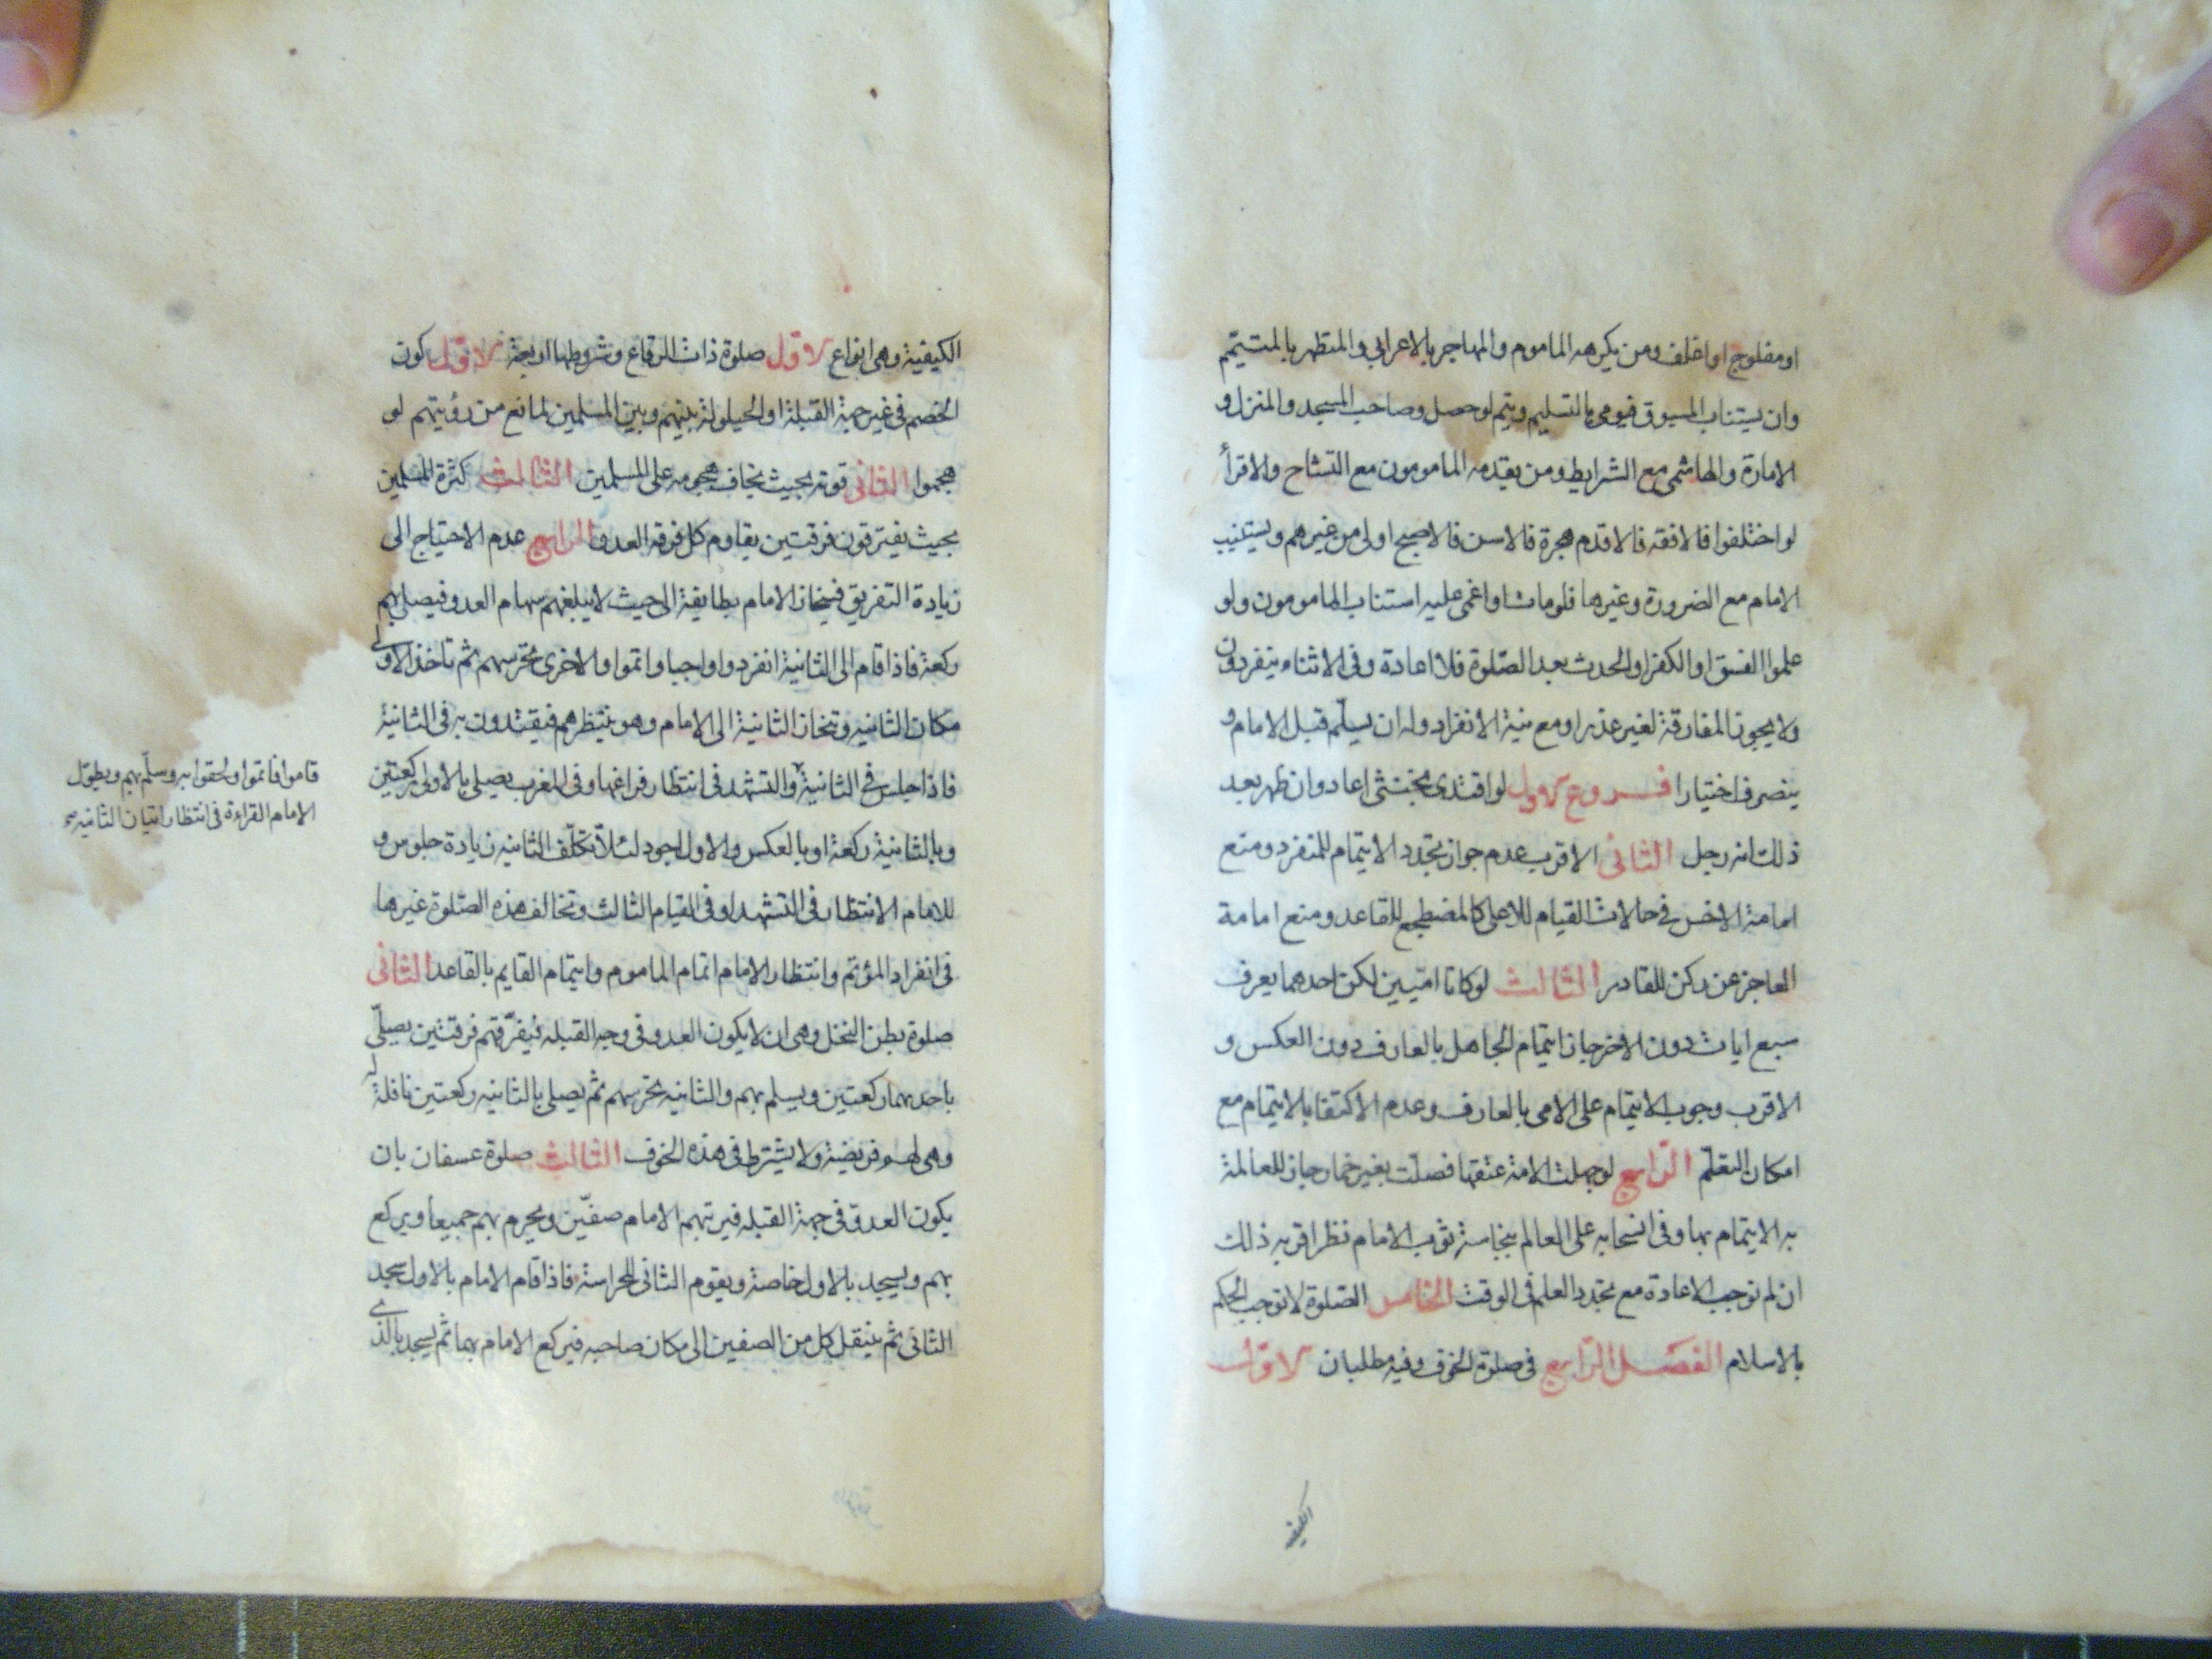 او مفلوج او اغلف ومن يكرهه الماموم والمهاجر بالاعرابي والمتطهر بالمتيمم
وان يستناب المسبوق فيومى بالتسليم ويتم لو حصل وصاحب المسجد والمنزل و
الامارة والهاشمى مع الشرايط ومن يقدمه المامومون مع التشاح والاقرأ
لو اختلفوا فالافقه فالاقدم هجرة فالاسن فالاصبح اولى من غيرهم ويستنيب
الامام مع الضرورة وغيرها فلو مات او اغمى عليه استناب المامومون ولو
علموا الفسق او الكفر او الحدث بعد الصّلوة فلا اعادة وفى الاثناء ينفردون
ولا يجوز المفارقة لغير عذر او مع نية الانفراد وله ان يسلّم قبل الامام و
ينصرف اختيارا فـــروع الاول لو اقتدى بخنثى اعاد وان ظهر بعد
ذلك انه رجل الثانى الاقرب عدم جواز تجدد الايتمام للمنفرد ومنع
امامة الاخس فى حالات القيام للاعلى كالمضطجع للقاعد ومنع امامة
العاجز عن ركن للقادر الثالث لو كانا اميين لكن احدهما يعرف
سبع ايات دون الاخر جاز ايتمام الجاهل بالعارف دون العكس و
الاقرب وجوب الايتمام على الامى بالعارف وعدم الاكتفا بالايتمام مع
امكان التعلّم الرّابع لو جهلت الامة عتقها فصلّت بغير خمار جاز للعالمة
به الايتمام بها وفى انسحابه على العالم بنجاسة ثوب الامام نظر اقربه ذلك
ان لم نوجب الاعادة مع تجدد العلم فى الوقت الخامس الصّلوة لا توجب الحكم
بالاسلام الفصل الرّابع فى صلوة الخوف وفيه مطلبان الاول
الكيفية
الكيفية وهى انواع الاول صلوة ذات الرقاع وشروطها اربعة الاول كون
الخصم فى غير جهة القبلة او الحيلولة بينهم وبين المسلمين لمانع من رؤيتهم لو
هجموا الثانى قوته بحيث يخاف هجومه على المسلمين الثالث كثرة المسلمين
بحيث يفترقون فرقتين يقاوم كل فرقة العدو الرابع عدم الاحتياج الى
زيادة التفريق فينحاز الامام بطايفة الى حيث لا يبلغهم سهام العدو فيصلى بهم
ركعة فاذا قام الى الثانية انفردوا واجبا واتموا والاخرى تحرسهم ثم تاخذ الاولى
مكان الثانيه وتنحاز الثانية الى الامام وهو ينتظرهم فيقتدون به فى الثانية
فاذا جلس فى الثانية والتشهد فى انتظار فراغها وفى المغرب يصلى بالاولى ركعتين
وبالثانية ركعة او بالعكس والاول اجود لئلّا تكلّف الثانيه زيادة جلوس و
للامام الانتظار فى التشهد او فى القيام الثالث وتخالف هذه الصّلوة غيرها
فى انفراد المؤتم وانتظار الامام اتمام الماموم وايتمام القايم بالقاعد الثانى
صلوة بطن النخل وهى ان لا يكون العدو فى وجه القبله فيفرّقهم فرقتين يصلّى
باحدهما ركعتين ويسلم بهم والثانيه تحرسهم ثم يصلى بالثانيه ركعتين نافلة له
وهى لهم فريضة ولا يشترط فى هذه الخوف الثالث صلوة عسفان بان
يكون العدو فى جهة القبله فيرتبهم الامام صفّين ويحرم بهم جميعا ويركع
بهم ويسجد بالاول خاصة ويقوم الثانى للحراسة فاذا قام الامام بالاول سجد
الثانى ثم ينتقل كل من الصفين الى مكان صاحبه فيركع الامام بهما ثم يسجد بالذى
قاموا فاتموا ولحقوا به وسلّم بهم ويطوّل
الامام القراءة فى انتظار اتيان الثانيه